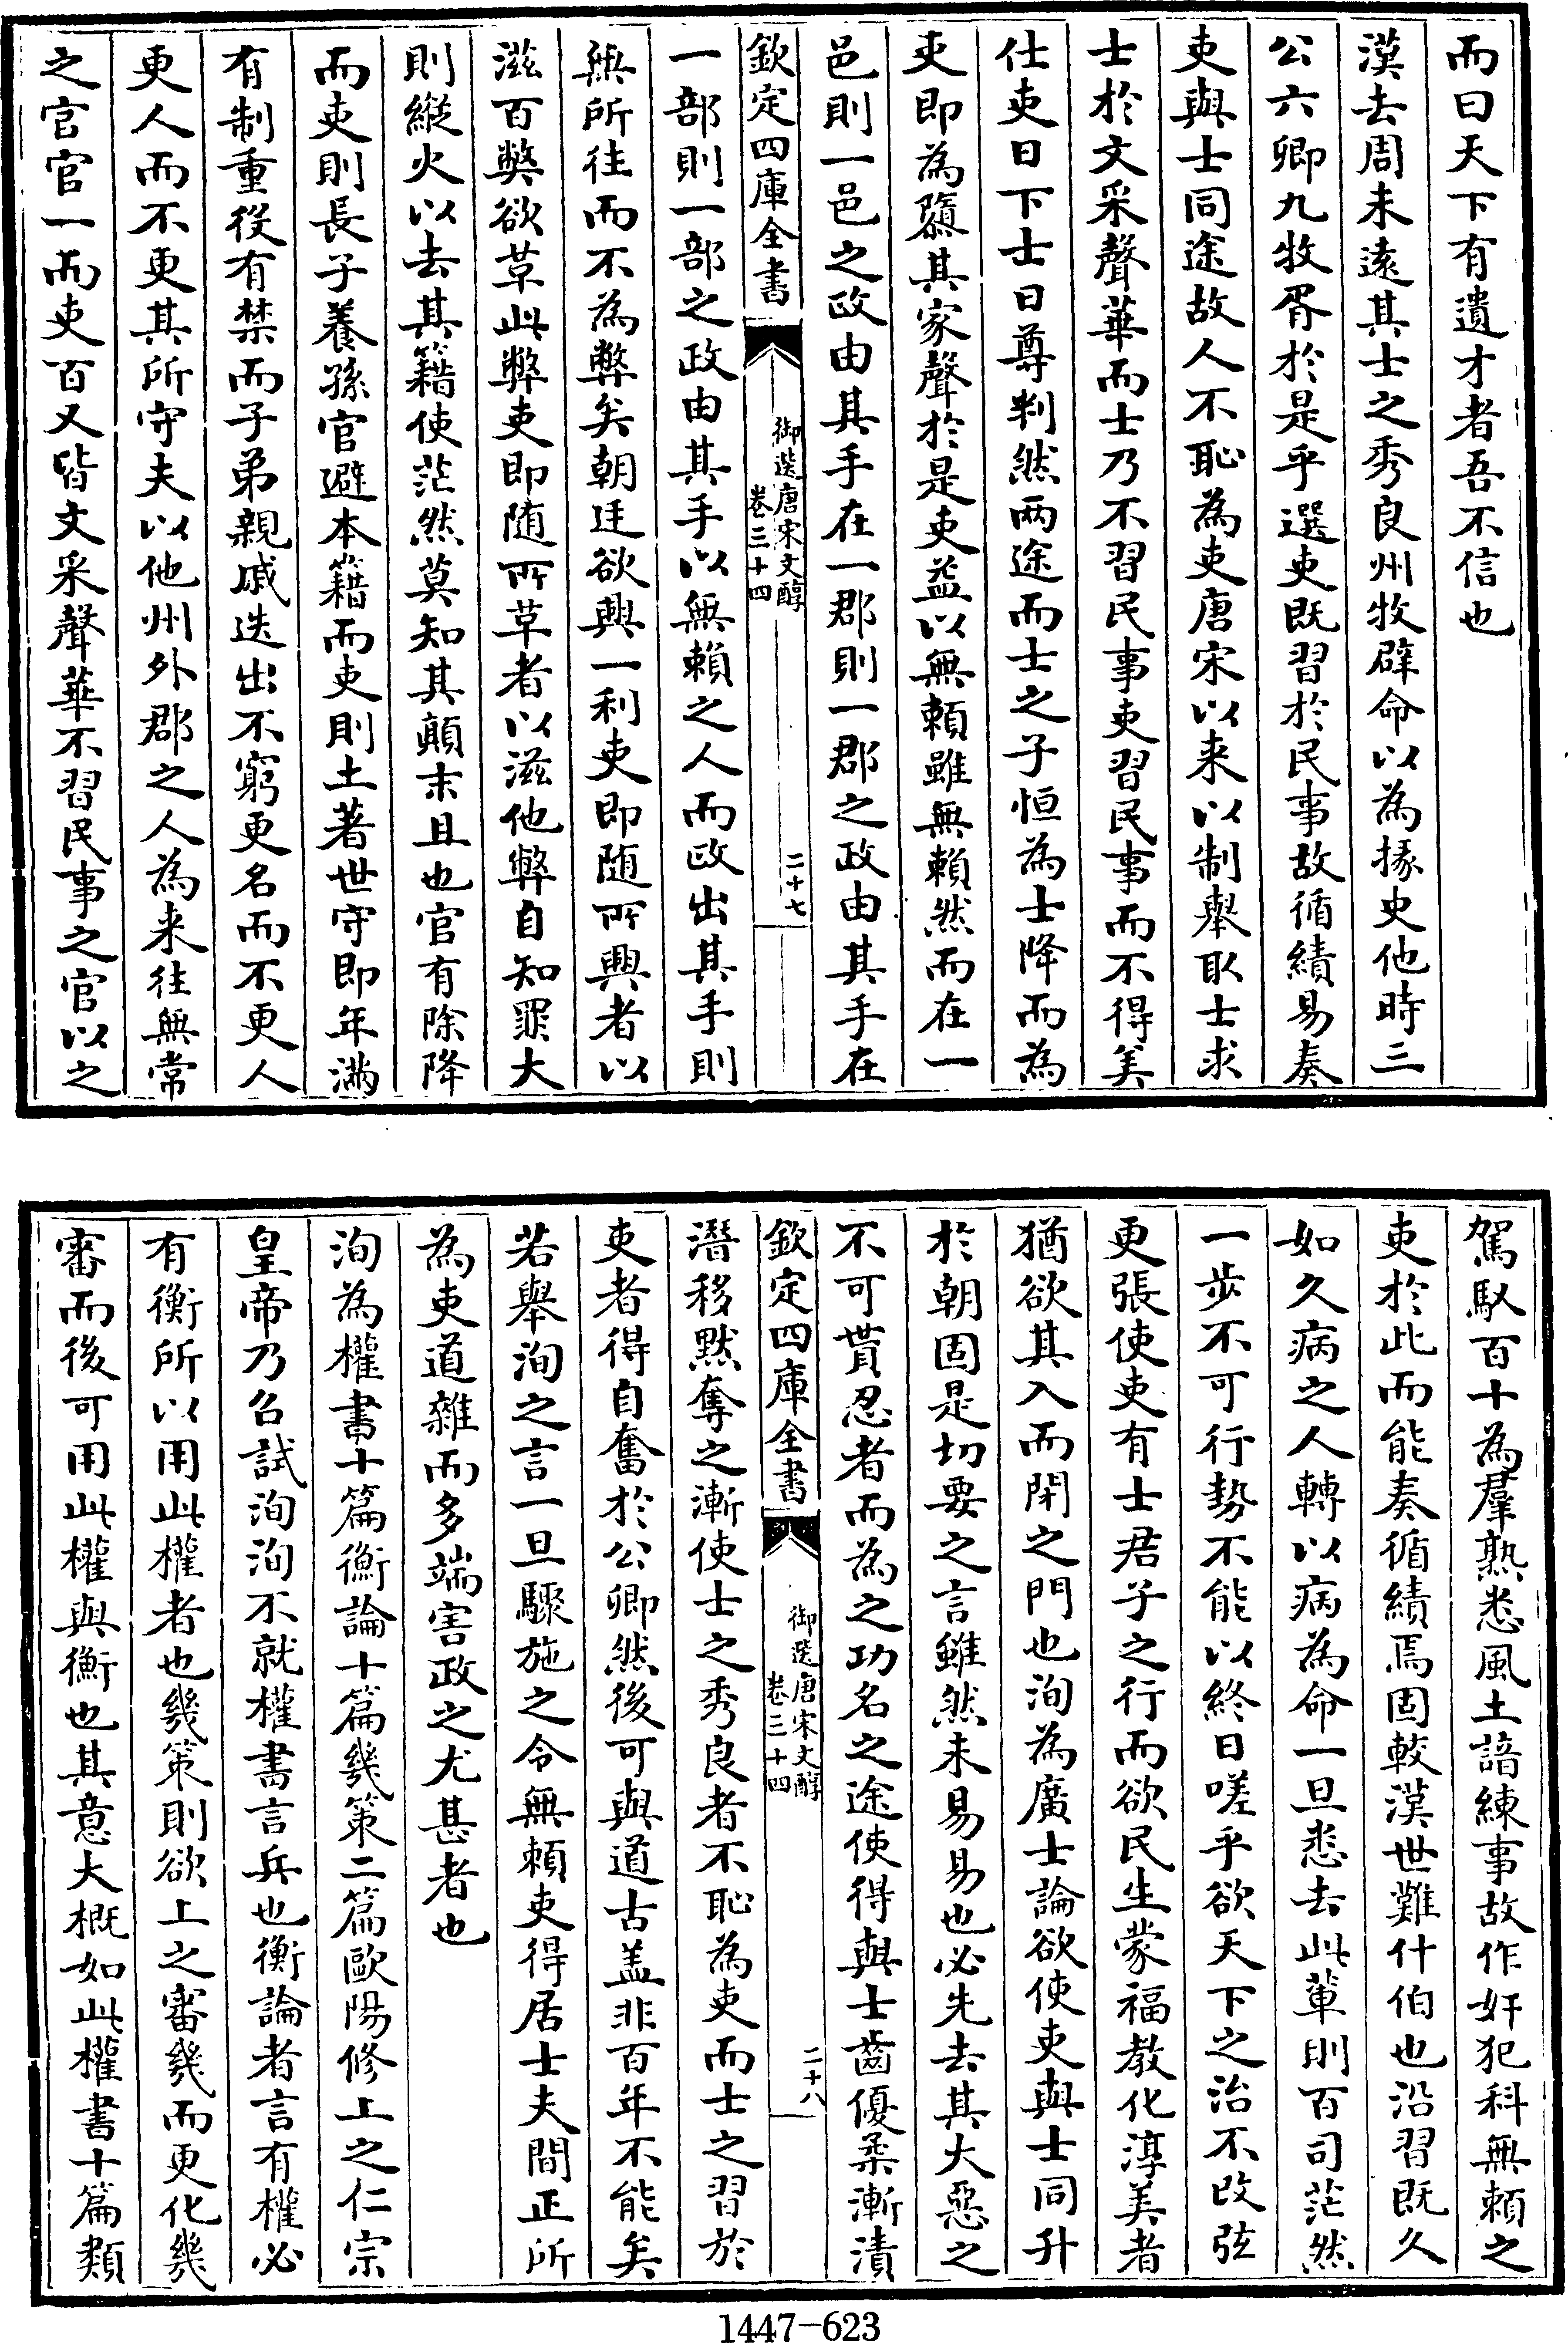 而曰天下有遺才者吾不信也
漢去周未遠其士之秀良州牧辟命以為掾史他時三
公六卿九牧胥於是乎選吏既習於民事故循績易奏
吏與士同途故人不恥為吏唐宋以来以制舉取士求
士於文采聲華而士乃不習民事吏習民事而不得美
仕吏日下士日尊判然两途而士之子恒為士降而為
吏即為隳其家聲於是吏益以無賴雖無賴然而在一
邑則一邑之政由其手在一郡則一郡之政由其手在
欽定四庫全書
御選唐宋文醇
卷三十四
二十七
一部則一部之政由其手以無賴之人而政出其手則
無所往而不為弊矣朝廷欲興一利吏即随所興者以
滋百弊欲草此弊吏即随所草者以滋他弊自知罪大
則縱火以去其籍使茫然莫知其顛末且也官有除降
而吏則長子養孫官避本籍而吏則土著世守即年滿
有制重役有禁而子弟親戚迭出不窮更名而不更人
更人而不更其所守夫以他州外郡之人為来往無常
之官官一而吏百又皆文采聲華不習民事之官以之
駕馭百十為羣熟悉風土諳練事故作奸犯科無賴之
吏於此而能奏循績焉固較漢世難什伯也沿習既久
如久病之人轉以病為命一旦悉去此輩則百司茫然
一步不可行勢不能以終日嗟乎欲天下之治不改弦
更張使吏有士君子之行而欲民生蒙福教化淳美者
猶欲其入而閉之門也洵為廣士論欲使吏與士同升
於朝固是切要之言雖然未易易也必先去其大惡之
不可貰忍者而為之功名之途使得與士齒優柔漸漬
欽定四庫全書
御選唐宋文醇
卷三十四
二十八
潛移默奪之漸使士之秀良者不恥為吏而士之習於
吏者得自奮於公卿然後可與道古盖非百年不能矣
若舉洵之言一旦驟施之令無賴吏得居士夫間正所
為吏道雜而多端害政之尤甚者也
洵為權書十篇衡論十篇幾策二篇歐陽修上之仁宗
皇帝乃召試洵洵不就權書言兵也衡論者言有權必
有衡所以用此權者也幾策則欲上之審幾而更化幾
審而後可用此權與衡也其意大概如此權書十篇類
1447-623